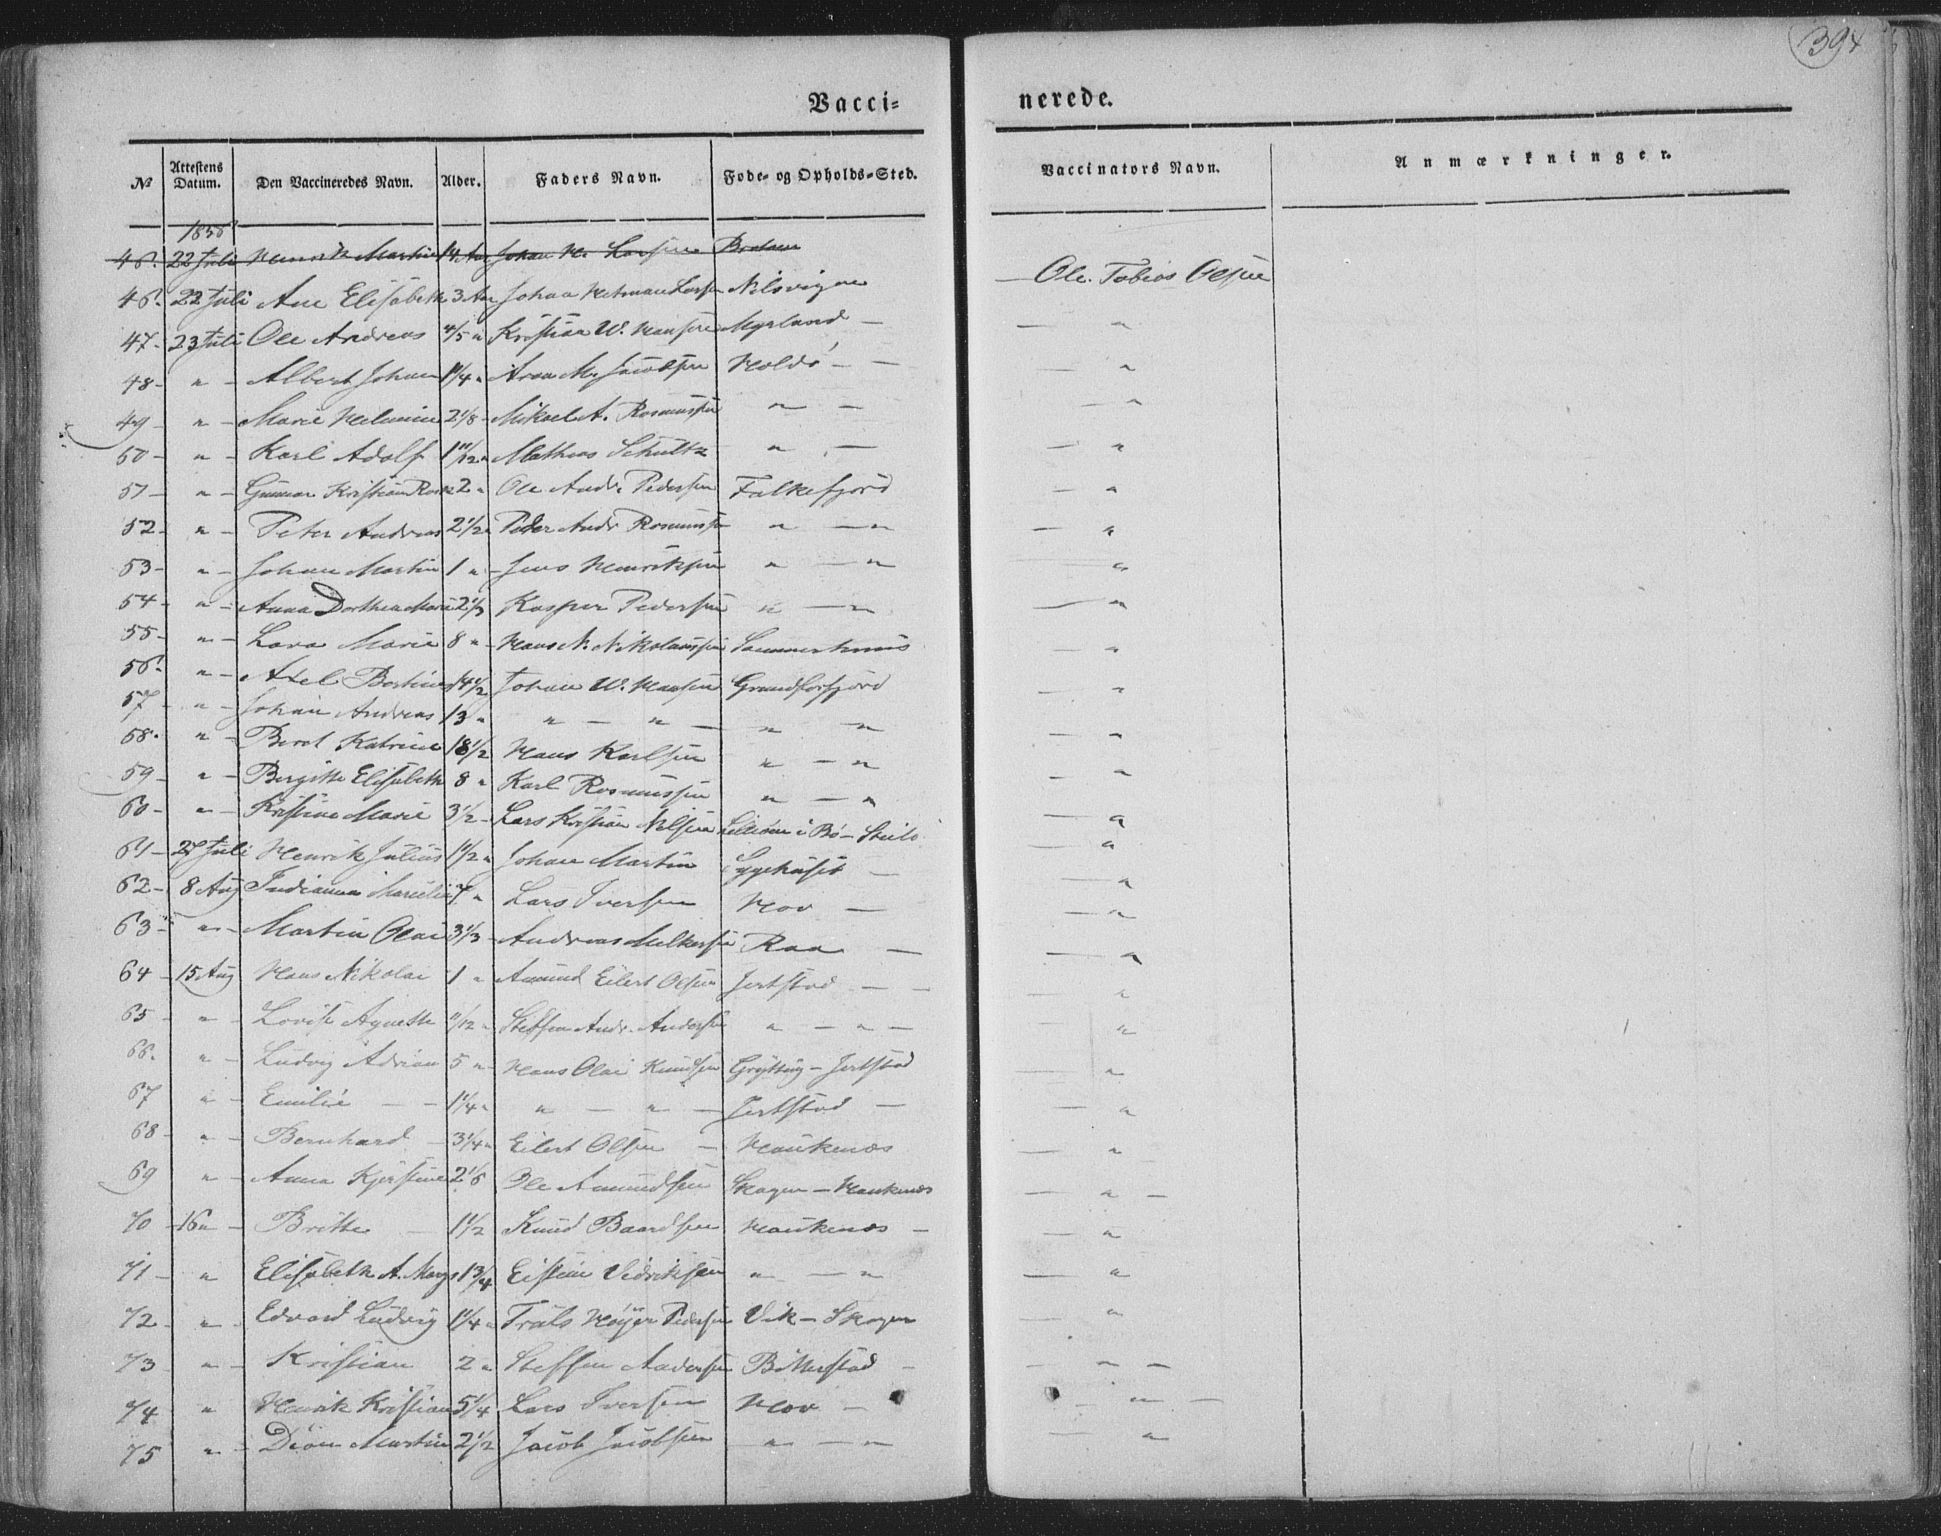 394
Vacci= nerede.
No Attestens Datum. Den Vaccineredes Navn. Alder. Faders Navn. Føde- og Opholds-Sted. Vaccinators Navn. Anmærkninger.
1856
46. 22 Juli Henrik Martin 14 Aar Johan H. Larsen
46. 22 Juli Ane Elisabeth 3 Aar Johan Larsen Nilsvigen — Ole Tobias Olsen
47- 23 Juli Ole Andreas 4/5 " Kristian W. Hansen Myrland — — "
48- " - Albert Johan 1 1/4 " Aron M. Jacobsen Holdø — — "
49- " - Marie 2 1/8 - Mikael A. Rasmussen " — — "
50- " - Karl Adolf 1 11/12 " Mathias Schultz " — — "
51- " - Gunnar Kristian 2 " Ole Andr. Pedersen Falkefjord — "
52- " - Peter Andreas 2 1/2 " Peder Andr Rasmussen " — " — "
53- " - Johan Martin 1 " - Jens Henriksen " — " — "
54- " - Anna Dorthea Marie 2 1/3 Kasper Pedersen " — " — "
55- " - Lava Marie 8 " - Hans N. Nikolaussen Sommerhuus — "
56. " - Axel 14 1/2 Johan W. Hansen Grundforfjord — "
57- " - Johan Andreas 13 " " — " — " "
58. " - Beret Katrine 18 1/2 Hans Karlsen " — " — "
59- " - Bergitte Elisabeth 8 " Karl Rasmussen " — " — "
60- " - Kristine Marie 3 1/2 - Lars Kristian Nilsen i Bø — — "
61- 27 Juli Henrik Julius 1 1/2 " Johan Martin Eggehuset — — "
62- 8 Aug Indianna 7 " Lars Iversen Hov — — "
63- " - Martin Olai 3 1/3 - Andreas Melkersen Raa — — "
64- 15 Aug Hans Nikolai 1 " - Amund Eilert Olsen Jertstad — — — "
65- " - Lovise Agnette 11/12 " Steffen Andr. Andersen " — " — — "
66. " - Ludvig Adrian 5 " - Hans Olai Knudsen Grytting - Jertstad — "
67 " - Emilie — — 1 1/4 " " — " — Jertstad — — "
68- " - Bernhard — 3 1/4 " Eilert Olsen — Haukenæs — "
69 " - Anna Kjerstine 2 1/6 Ole Amundsen Skagen — Haukenæs — " —
70 - 16 " - Britha — 1 1/2 Knud Baardsen Haukenæs — — "
71- " Elisabeth A. Marg. 1 3/4 Eistein Vedriksen " — " — "
72- " - Edvard Ludvig 1 1/4 " Truls Høyer Pedersen Vik - Skagen — "
73- " - Kristian 2 " Steffen Andersen Bitterstad — — " —
74- " Henrik Kristian 5 1/4 Lars Iversen Hov — - " —
75 " - Martin 2 1/2 Jacob Jacobsen " — " — "